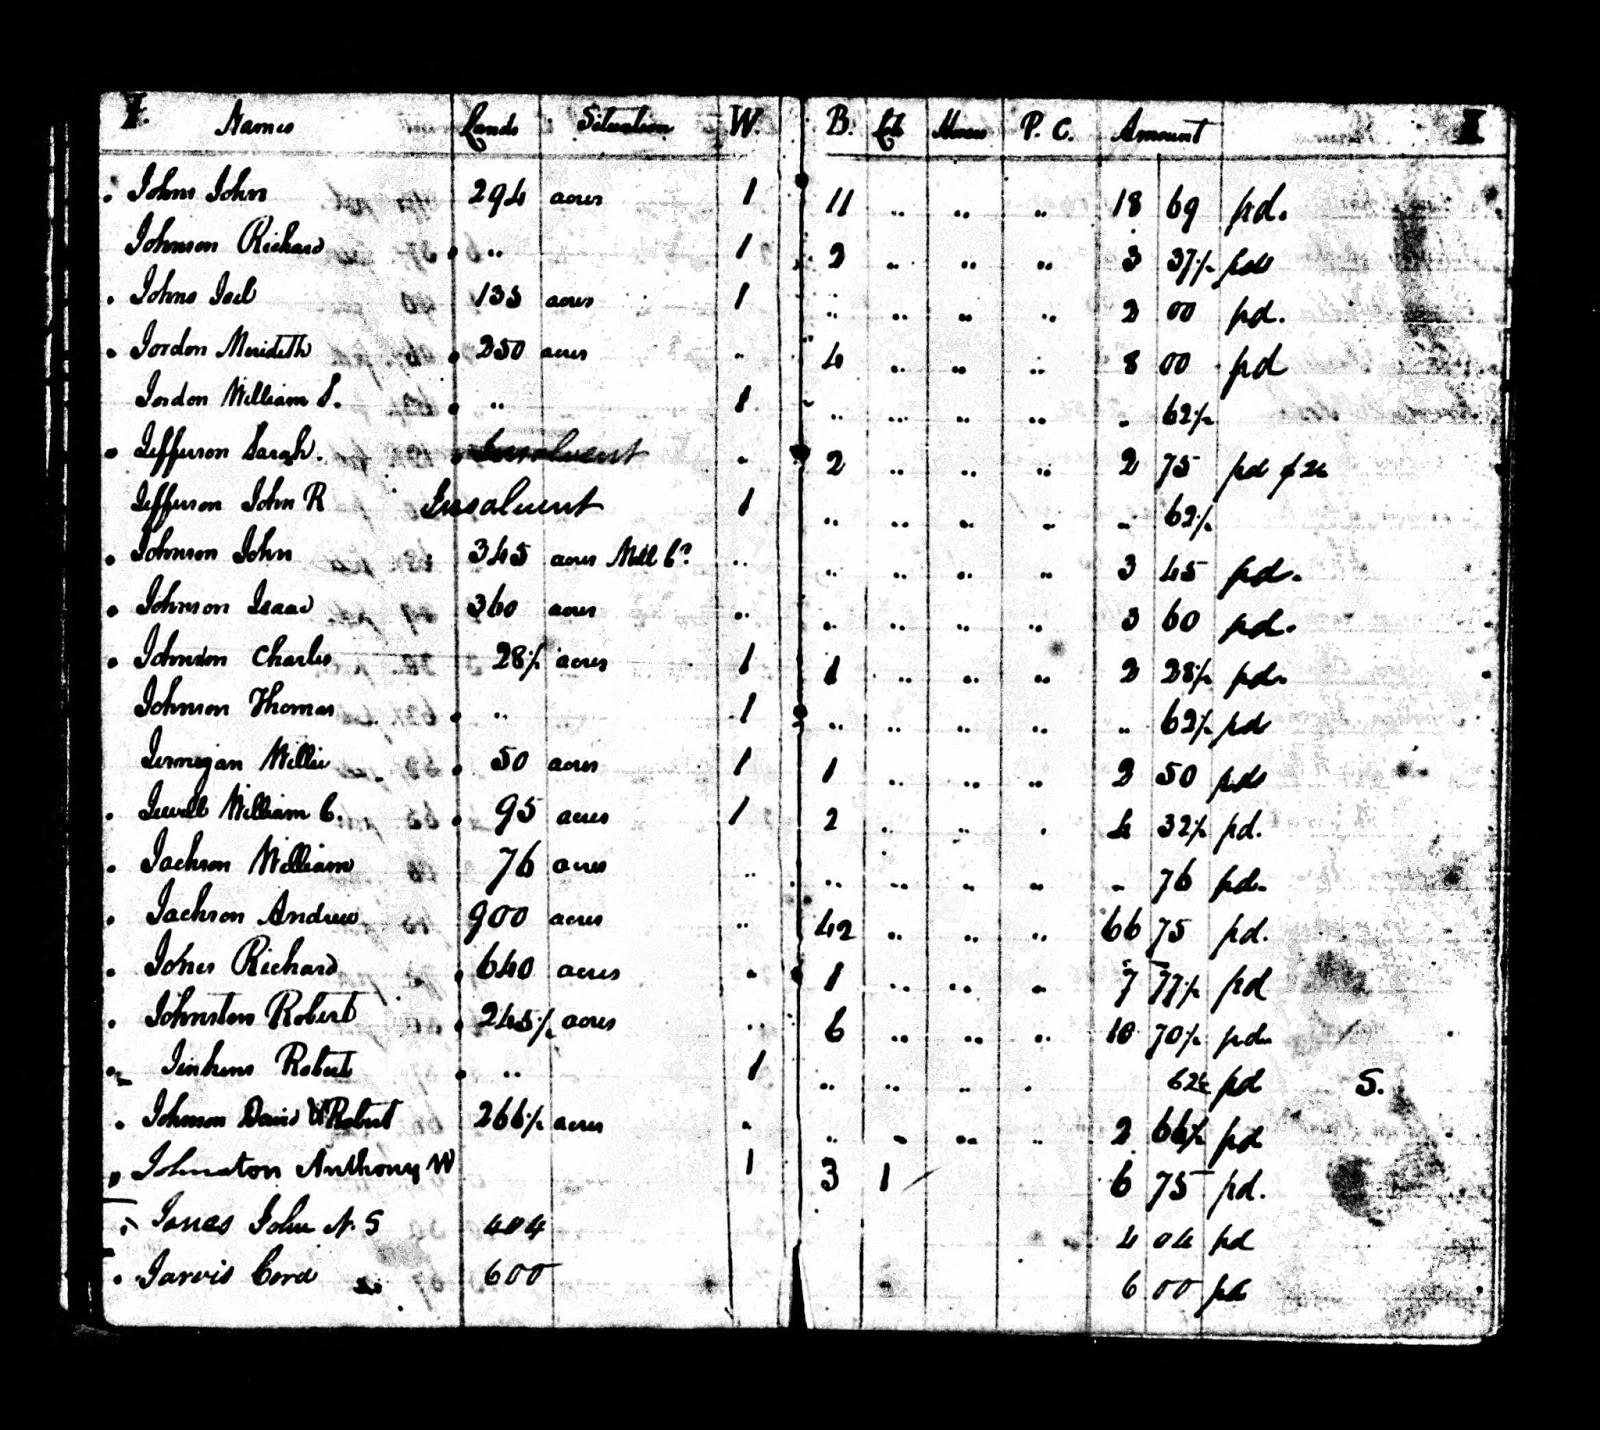 I. Names Lands Situation W. B. Lots Horses P. C. Amount I
Johns John 294 acres 1 11 .. .. .. 18 69 pd.
Johnson Richard .. 1 2 .. .. .. 3 37½ pd
Johns Joel 135 acres 1 .. .. .. .. 2 00 pd.
Jordon Merideth 250 acres .. 4 .. .. .. 8 00 pd
Jordon William S. .. 1 .. .. .. .. .. 62½
Jefferson Sarah. Insolvent .. 2 .. .. .. 2 75 pd
Jefferson John R Insolvent 1 .. .. .. .. .. 62½
Johnson John 345 acres Mill C? .. .. .. .. .. 3 45 pd.
Johnson Isaac 360 acres .. .. .. .. .. 3 60 pd.
Johnson Charles 28½ acres 1 1 .. .. .. 2 28½ pd.
Johnson Thomas .. 1 .. .. .. .. .. 62½ pd
Jernegan Willie 50 acres 1 1 .. .. .. 2 50 pd
Jewell William C. 95 acres 1 2 .. .. . 4 32½ pd.
Jackson William 76 acres .. .. .. .. .. .. 76 pd.
Jackson Andrew 900 acres .. 42 .. .. .. 66 75 pd.
Jones Richard 640 acres .. 1 .. .. .. 7 77½ pd
Johnston Robert 245½ acres .. 6 .. .. .. 10 70½ pd.
Jenkens Robert .. 1 .. .. .. . 62½ pd S.
Johnson David & Robert 266½ acres .. .. .. .. .. 2 66½ pd
Johnston Anthony W 1 3 1 6 75 pd.
Jones John N. S 404 4 04 pd
Jarvis Cord 600 6 00 pd